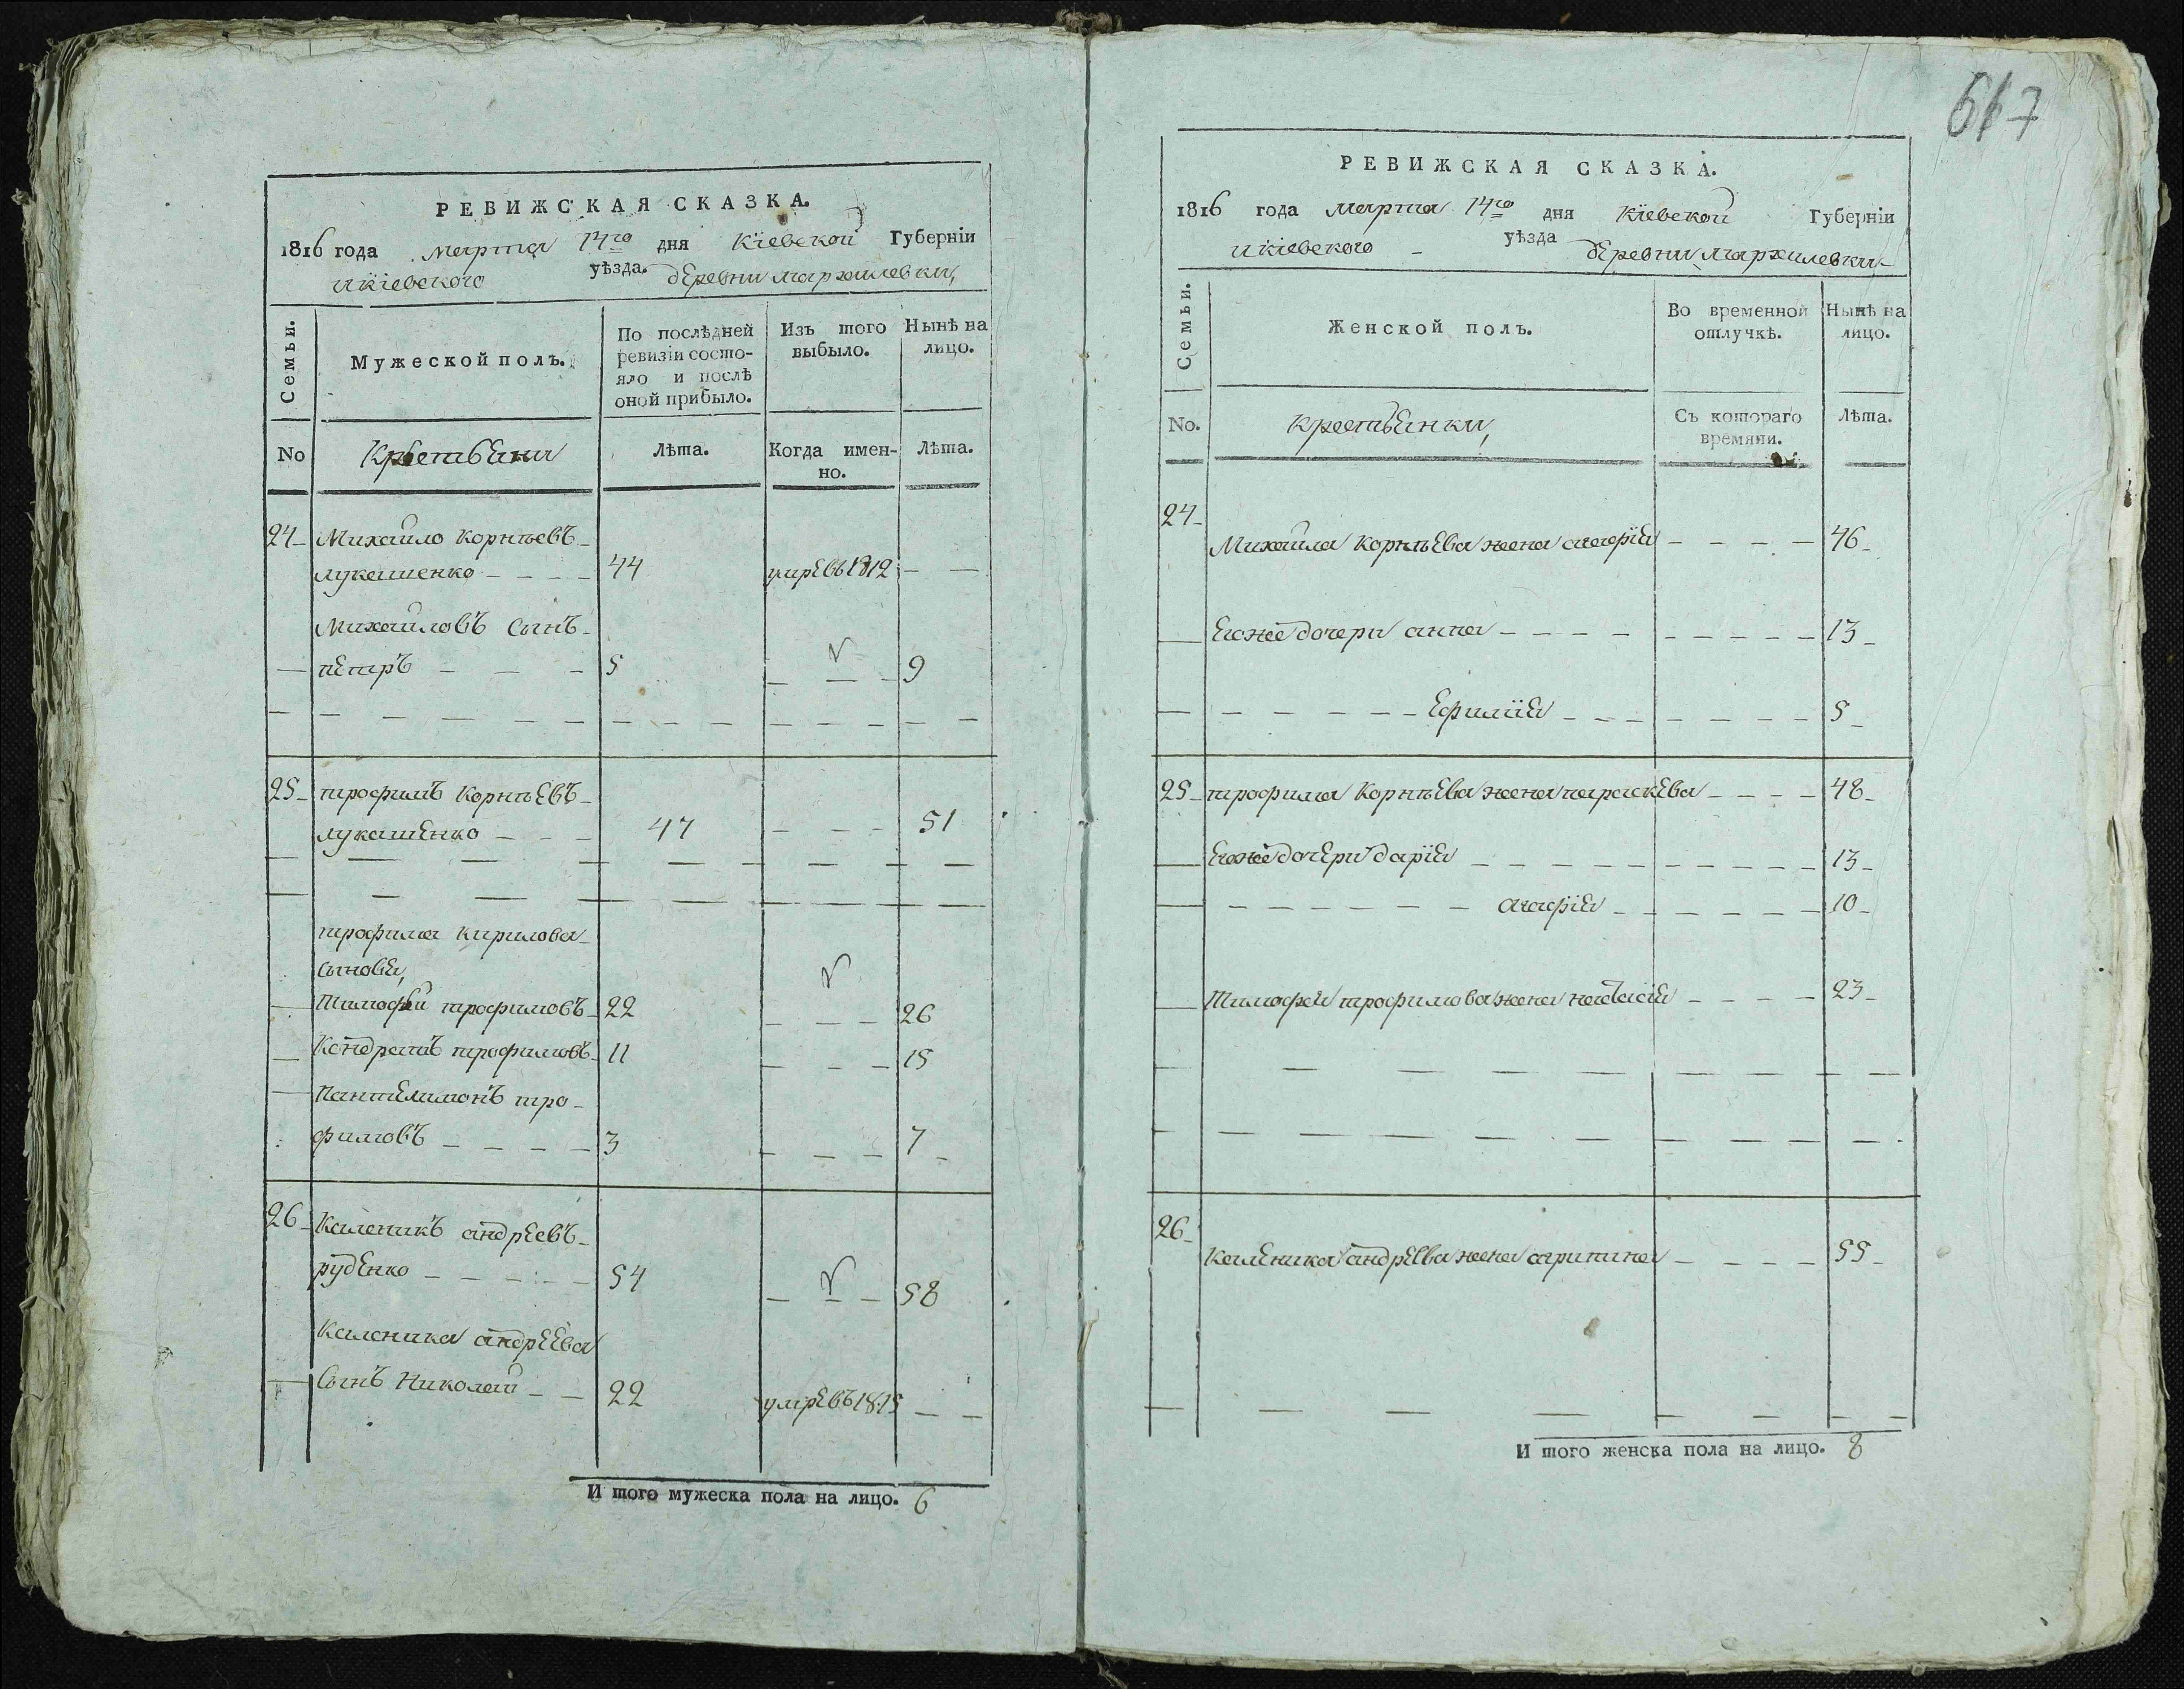 667
РЕВИЖСКАЯ СКАЗКА.
1816 года марта 14го дня Кіевской Губерніи
и кіевского уѣзда. деревни мархилевки,
Семьи.
Мужеской полъ.
По послѣдней ревизіи состо-
яло и послѣ
оной прибыло.
Изъ того
выбыло.
Нынѣ на
лицо.
No
Крестьяни
Лѣта.
Когда имен-
но.
Лѣта.
24 Михайло корнѣевъ
лукашенко 44 умревъ 1812
Михайловъ Сынъ
петръ 5 9
25 трофимъ корнѣевъ
лукашенко 47 51
трофима кирилова
Сыновя,
Тимофѣй трофимовъ 22 26
Кондратъ трофимовъ 11 15
Пантелимонъ тро-
фимовъ 3 7
26 Каленикъ андреевъ
руденко 54 58
Каленика андреева
Сынъ Николай 22 умревъ 1815
И того мужеска пола на лицо. 6
РЕВИЖСКАЯ СКАЗКА.
1816 года марта 14го дня Кіевской Губерніи
и кіевского уѣзда деревни мархилевки
Семьи.
Женской полъ.
Во временной
отлучкѣ.
Нынѣ на
лицо.
No.
Крестьянки,
Съ котораго
времяни.
Лѣта.
24
Михайла корнѣева жена агафія 46
Егоже дочери анна 13
Ефимія 5
25 трофима корнѣева жена параскева 48
Егоже дочери дарія 13
агафія 10
Тимофея трофимова жена настасія 23
26
Каленика андреева жена агрипина 55
И того женска пола на лицо. 8